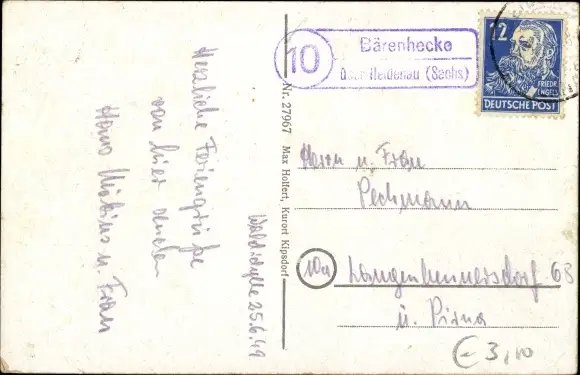 Herzliche Feriengrüße
von hier senden
Hans Möbius u. Frau
Waldidylle 25.6.49
Nr. 27967 Max Holfert, Kurort Kipsdorf
10
Bärenhecke
über Heidenau (Sachs)
12
FRIEDR.
ENGELS
DEUTSCHE POST
Herrn u. Frau
Pechmann
10a Langenhennersdorf 68
ü. Pirna
€ 3,10